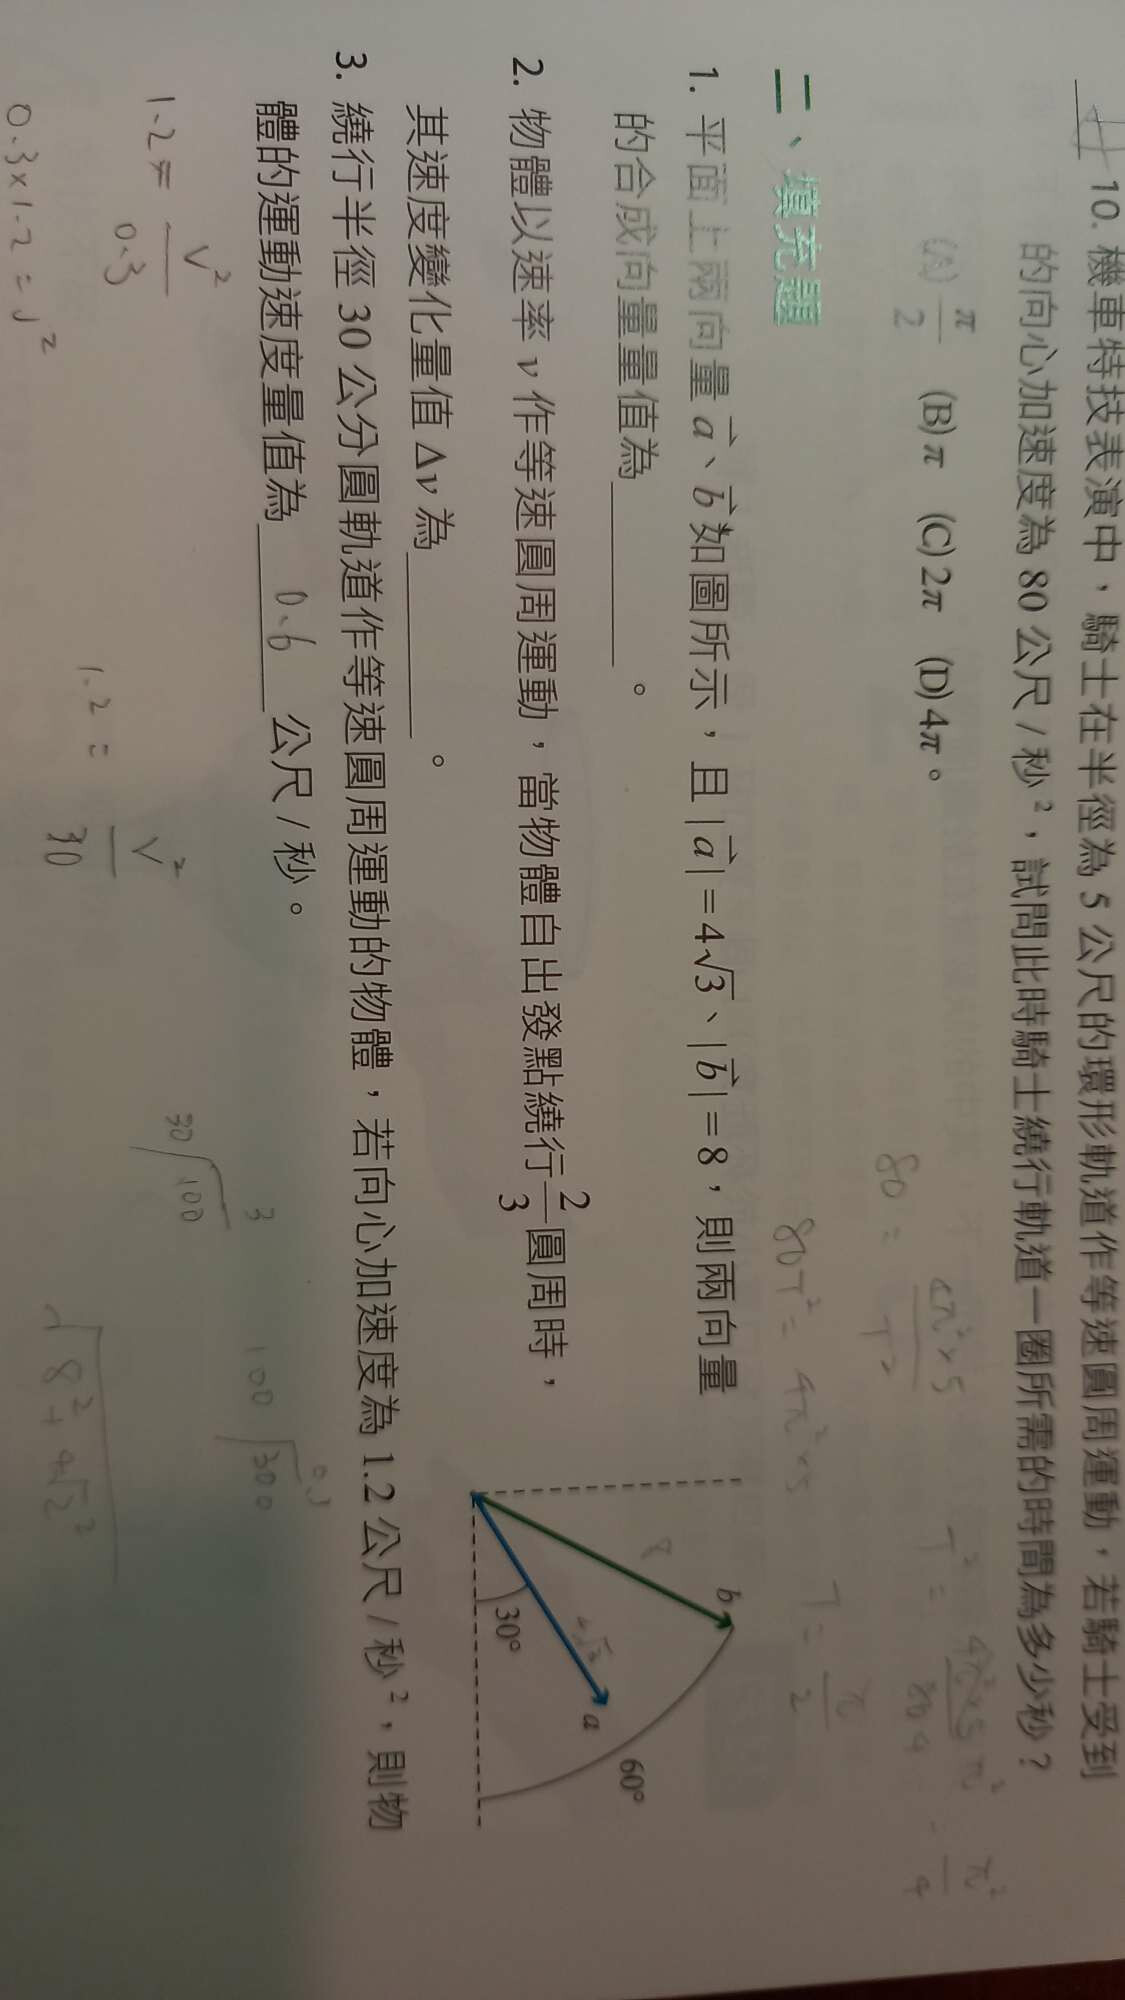 10. 機車特技表演中，騎士在半徑為 5 公尺的環形軌道作等速圓周運動，若騎士受到
的向心加速度為 80 公尺 / 秒²，試問此時騎士繞行軌道一圈所需的時間為多少秒？
(A) π/2 (B) π (C) 2π (D) 4π。
80 = 4π²×5 / T²
80T² = 4π²×5
T = π/2
二、填充題
1. 平面上兩向量 a⃗、b⃗ 如圖所示，且 |a⃗| = 4√3、|b⃗| = 8，則兩向量
的合成向量量值為＿＿＿＿。
b
8
a
30°
60°
2. 物體以速率 v 作等速圓周運動，當物體自出發點繞行 2/3 圓周時，
其速度變化量值 Δv 為＿＿＿＿。
3. 繞行半徑 30 公分圓軌道作等速圓周運動的物體，若向心加速度為 1.2 公尺 / 秒²，則物
體的運動速度量值為 0.6 公尺 / 秒。
1.2 = v²/0.3
1.2 = v²/30
30 100
100 300
0.3×1.2 = v²